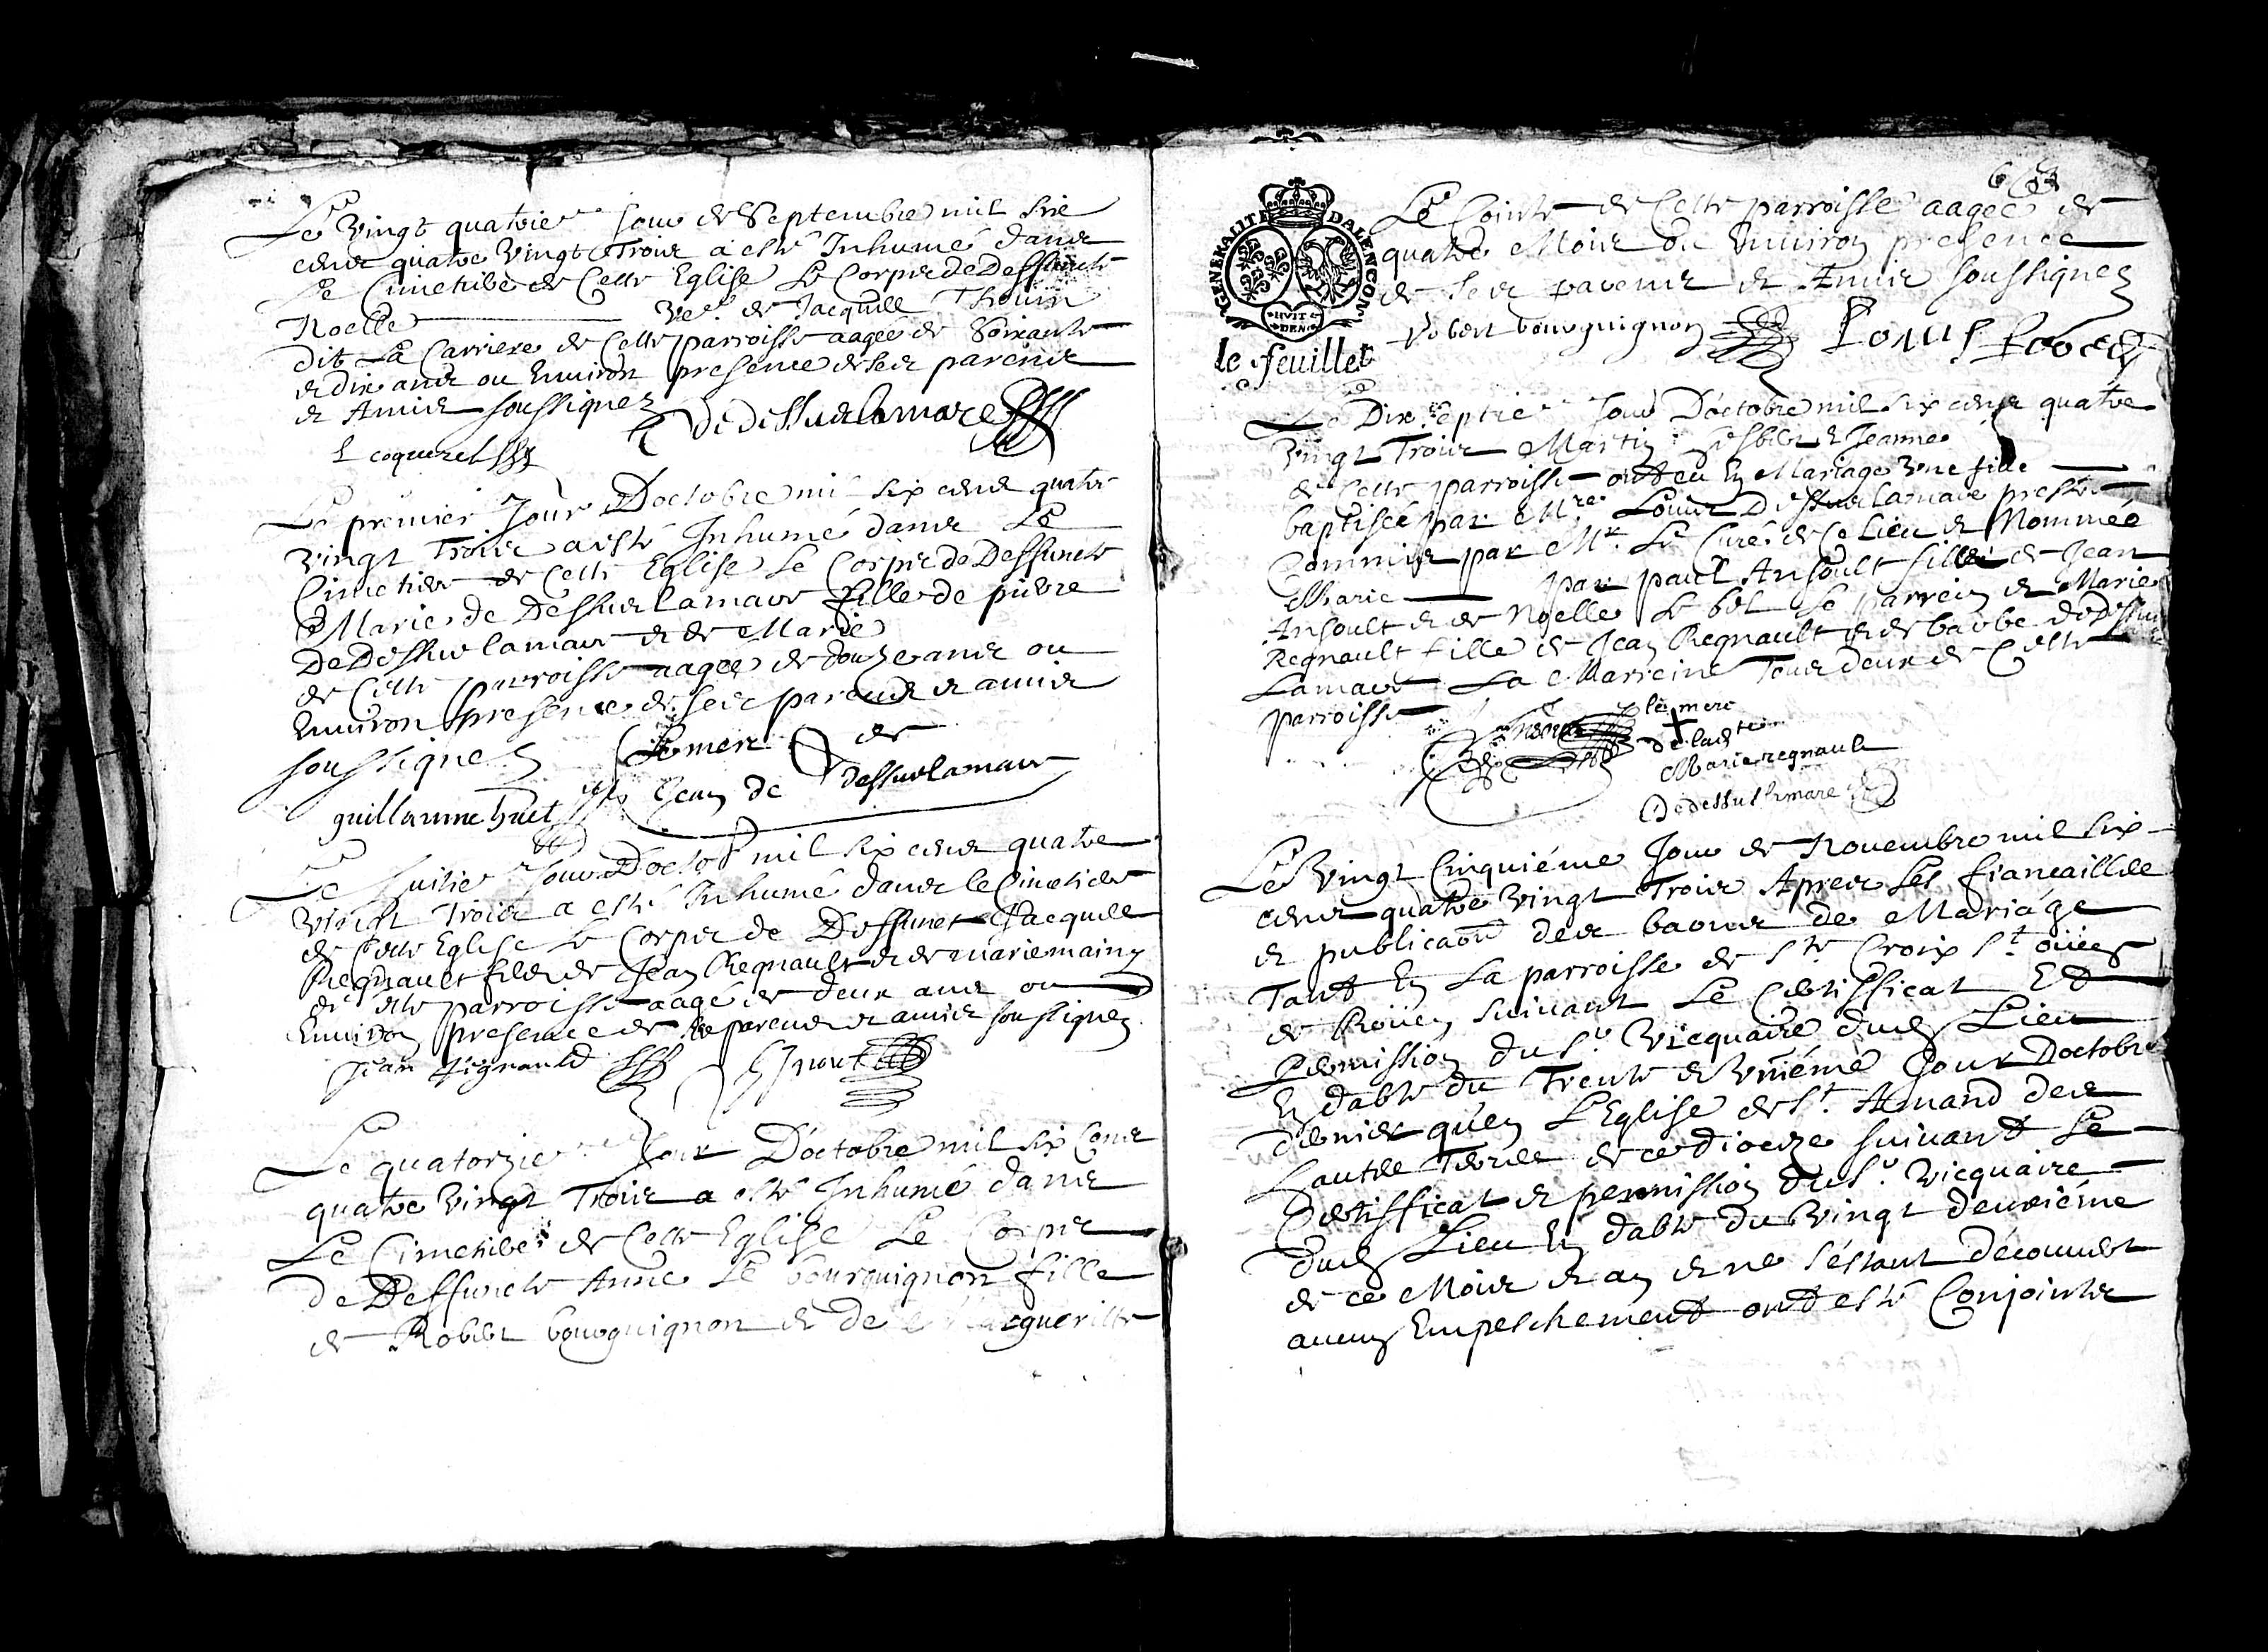 Le Vingt quatrie^me Jour de Septembre mil six
cens quatre vingt Trois a esté Inhumé dans
Le Cimetiere de Cette Eglise Le Corps de Deffuncte
Noelle ve^e de Jacques Thouin
dit La Carriere de Cette parroisse aagée de Soixante
et Dix ans ou Environ presence de ses parens
et Amis soussignez
L coquerel dedessuslamare
Le premier Jour Doctobre mil six cens quatre
vingt Trois a esté Inhumé dans Le
Cimetiere de Cette Eglise Le Corps de Deffuncte
Marie de Dessus lamare fille de pierre
DeDessus lamare et de Marie
de Cette parroisse aagée de douze ans ou
Environ presence de ses parens et amis
soussignez Lemere de
guillaume huet Jean de dessuslamare
Le huitie^me Jour Docto^b mil six cens quatre
Vingt Trois a esté Inhumé dans le Cimetiere
de Cette Eglise Le Corps de Deffunct Jacques
Regnault fils de Jean Regnault et de marie
de cette parroisse aagé de deux ans ou
Environ presence de ses parens et amis soussignez
Jean regnauld
Le quatorzie^me Jour Doctobre mil six Cens
quatre Vingt Trois a esté Inhumé dans
Le Cimetiere de Cette Eglise Le Corps
de Deffuncte Anne Le bourguignon fille
de Robert bourguignon et de Margueritte
GENERALITE DALENCON
HVIT DEN
le feuillet
Le Cointe de Cette parroisse aagée de
quatre Mois ou Environ presence
de ses parens et Amis soussignez
Robert bourguignon Louis
Le Dix septie^me Jour Doctobre mil six cens quatre
Vingt Trois Martin et Jeanne
de Cette parroisse ont eu En Mariage Une fille
baptisée par M^re Louis Dessus Lamare prestre
Commis par M^r Le Curé de Ce Lieu et Nommée
Marie par paul Ansoult fils de Jean
Ansoult et de Noelle Le bel Le parrein et Marie
Regnault fille de Jean Regnault et de barbe dedessus
Lamare La Marreine Tous deux de Cette
parroisse
le mere
Marie regnault
Dedessuslamare
Le Vingt Cinquiéme Jour de Novembre mil six
cens quatre Vingt Trois Apres Les fiancailles
et publicaon des bans de Mariage
Tant En La parroisse de S^te Croix S^t oüen
de Roüen suivant Le Certifficat Et
Permission du S^r Vicquaire dud Lieu
En datte du Trente et Uniéme Jour Doctobre
dernier qu'en L'Eglise de S^t Amand des
hautes Terres de ce diocèze suivant Le
Certifficat et permission du S^r Vicquaire
dud Lieu En datte du Vingt deuxiéme
de ce Mois et an et ne s'éstant découvert
aucun Empeschement ont esté Conjoints